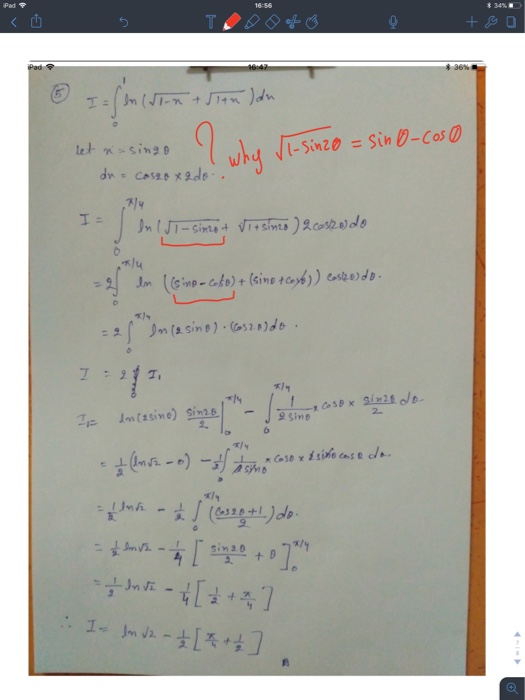 iPad
16:56
34%
T
iPad
16:47
36%
⑤ I = ∫₀¹ ln (√1-x + √1+x) dx
let x = sin2θ
dx = cos2θ × 2dθ.
? why √1-sin2θ = sinθ-cosθ
I = ∫₀^π/4 ln (√1-sin2θ + √1+sin2θ) 2cos(2θ)dθ
= 2∫₀^π/4 ln ((sinθ-cosθ) + (sinθ+cosθ)) cos(2θ)dθ.
= 2∫₀^π/4 ln(2sinθ).(cos2.θ)dθ.
I = 2 I₁
I₁= ln(2sinθ) sin2θ/2 |₀^π/4 - ∫₀^π/4 1/2sinθ × cosθ × sin2θ/2 dθ.
= 1/2 (ln√2 - 0) - 1/2 ∫₀^π/4 1/2sinθ × cosθ × 2sinθcosθ dθ.
= 1/2 ln√2 - 1/2 ∫₀^π/4 (cos2θ+1/2) dθ.
= 1/2 ln√2 - 1/4 [sin2θ/2 + θ]₀^π/4
= 1/2 ln√2 - 1/4 [1/2 + π/4]
∴ I = ln√2 - 1/2 [π/4 + 1/2]